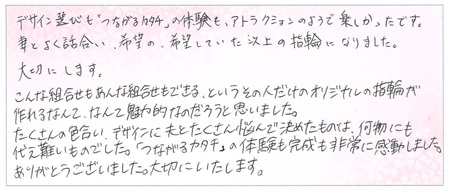 デザイン選びも"つながるカタチ"の体験も、アトラクションのようで楽しかったです。
妻とよく話合い、希望の、希望していた以上の指輪になりました。
大切にします。
こんな組合せもあんな組合せもできる、というその人だけのオリジナルの指輪が
作れるなんて、なんて魅力的なのだろうと思いました。
たくさんの色合い、デザインに夫とたくさん悩んで決めたものは、何物にも
代え難いものでした。「つながるカタチ」の体験も完成も非常に感動しました。
ありがとうございました。大切にいたします。